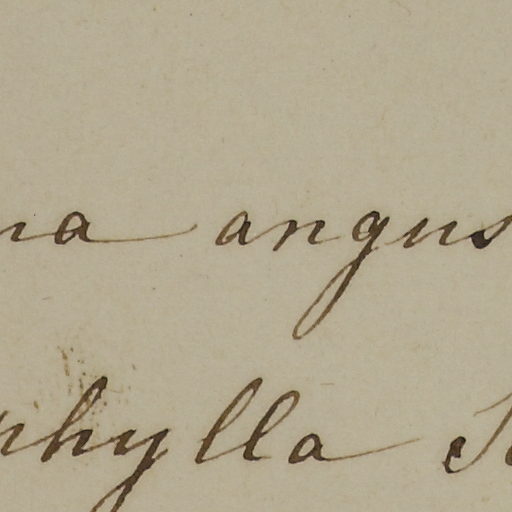 na angus
phylla S